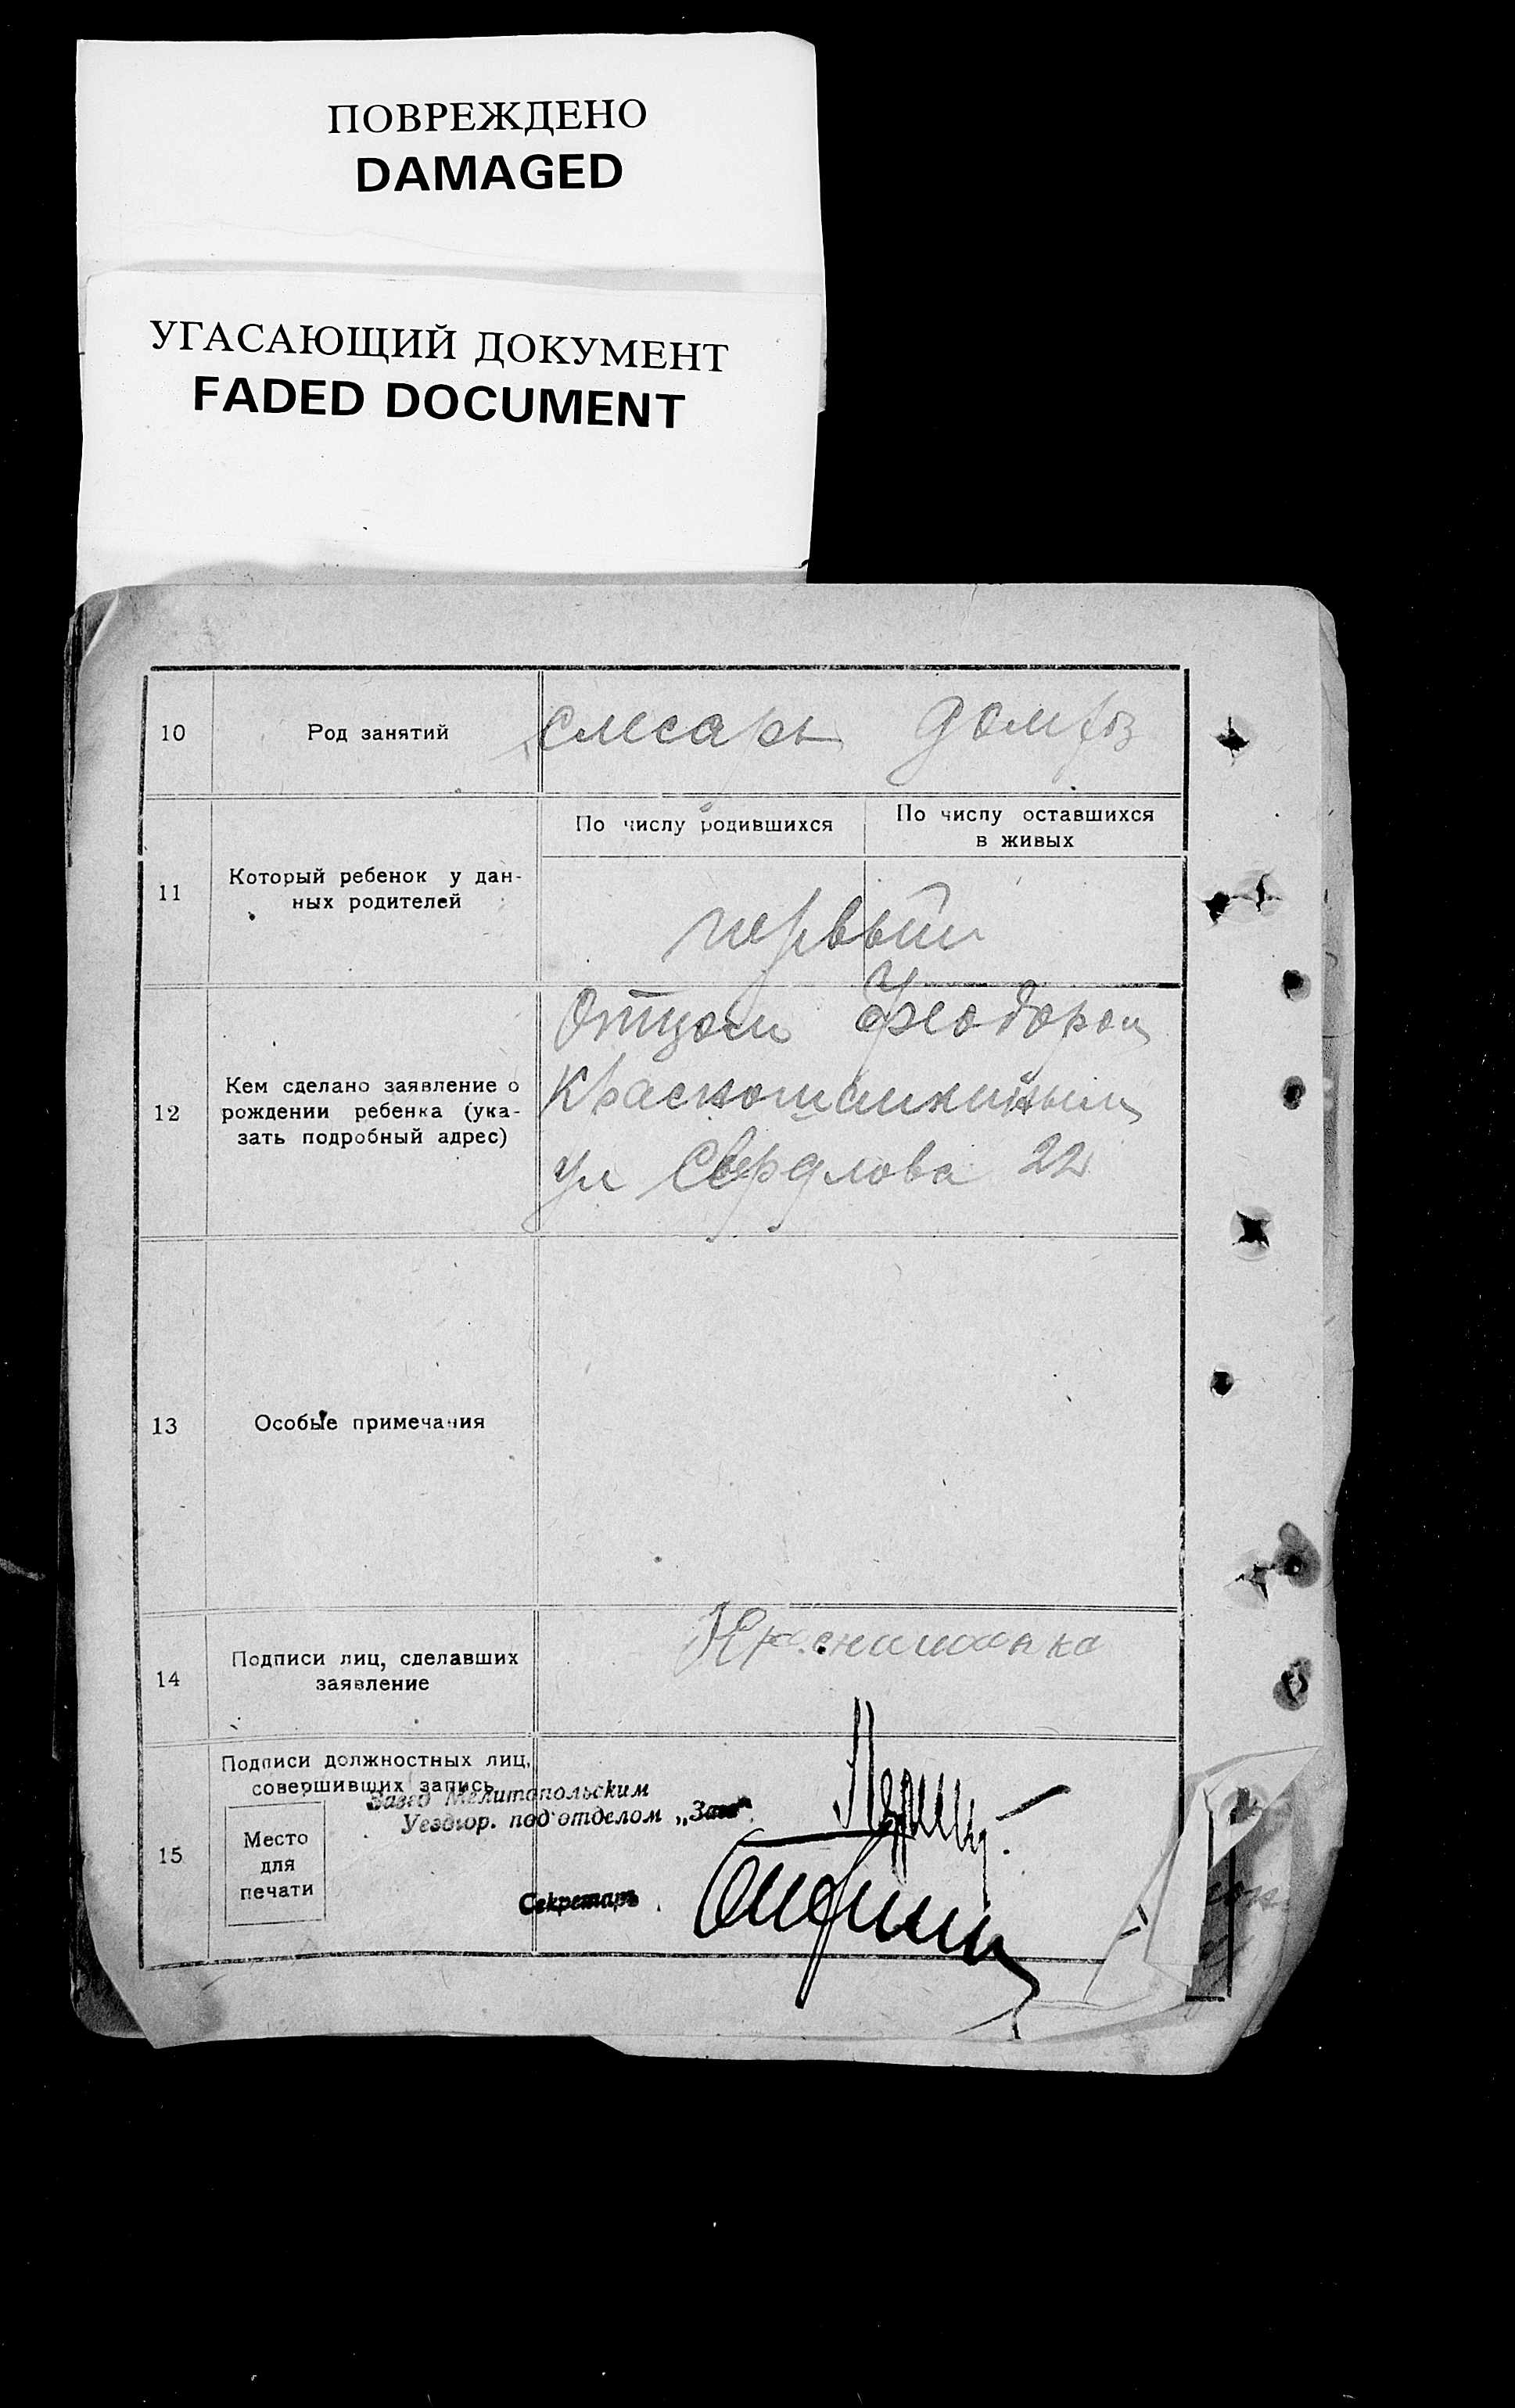 ПОВРЕЖДЕНО
DAMAGED
УГАСАЮЩИЙ ДОКУМЕНТ
FADED DOCUMENT
10 Род занятий слесарь домхоз
По числу родившихся
По числу оставшихся
в живых
11
Который ребенок у дан-
ных родителей
первый
12
Кем сделано заявление о
рождении ребенка (ука-
зать подробный адрес)
Отцом Феодором
ул Свердлова 22
13 Особые примечания
14
Подписи лиц, сделавших
заявление
15
Подписи должностных лиц,
совершивших запись
Завед Мелитопольским
Уездгор. подотделом „Загс“.
Место
для
печати
Секретарь